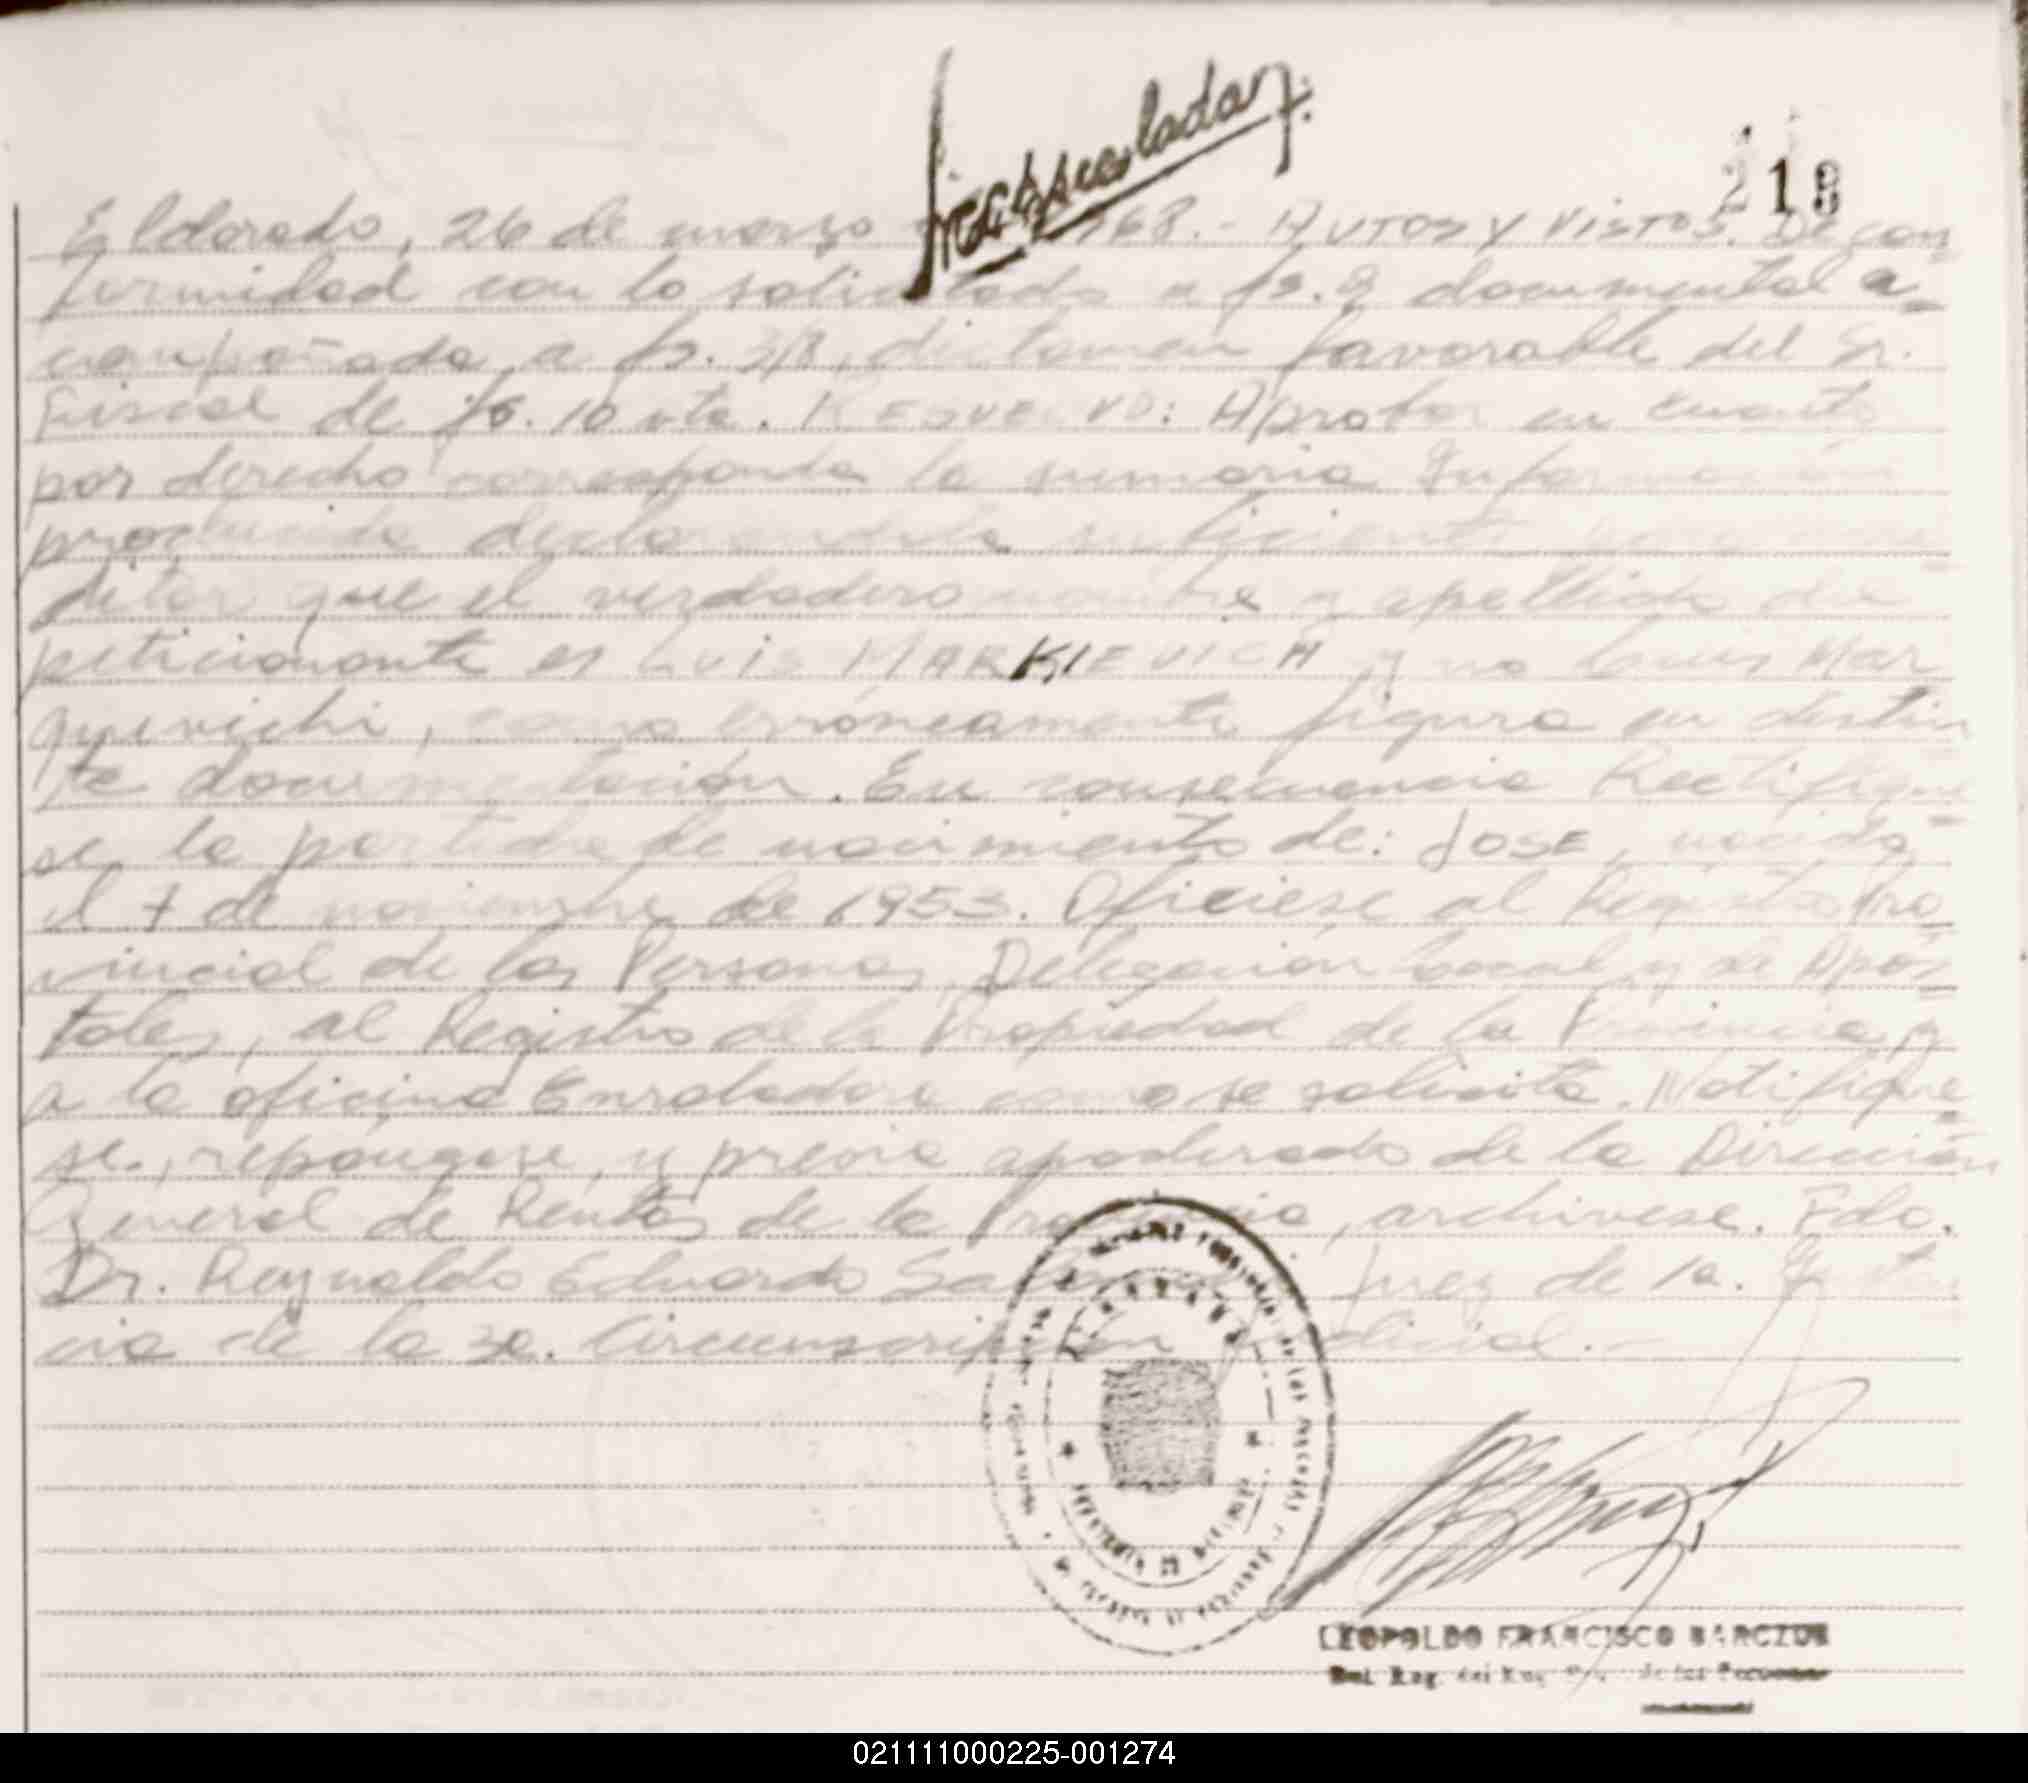 218
Eldorado, 26 de marzo 1968.- AUTOS Y VISTOS. De con
formidad con lo solicitado a fs. 9 documental a-
compañada a fs. 3/8, dictamen favorable del Sr.
Fiscal de fs. 10 vta. RESUELVO: Aprobar en cuanto
por derecho corresponda la sumaria Información
producida declarandola suficiente para acre-
ditar que el verdadero nombre y apellido del
peticionante es LUIS MARKIEVICH y no Luis Mar
quevichi, como erróneamente figura en distin
ta documentación. En consecuencia Rectifíque-
se la partida de nacimiento de: JOSE, nacido
el 7 de noviembre de 1953. Ofíciese al Registro Pro
vincial de las Personas, Delegación local y de Após-
toles, al Registro de la Propiedad de la Provincia y
a la oficina Enroladora como se solicita. Notifíque-
se, repóngase, y previo apoderado de la Dirección
General de Rentas de la Provincia, archívese. Fdo.
Dr. Reynaldo Eduardo Juez de 1a. Instan
cia de la 3a. Circunscripción Judicial.-
LEOPOLDO FRANCISCO BARCZUK
de las Personas
021111000225-001274